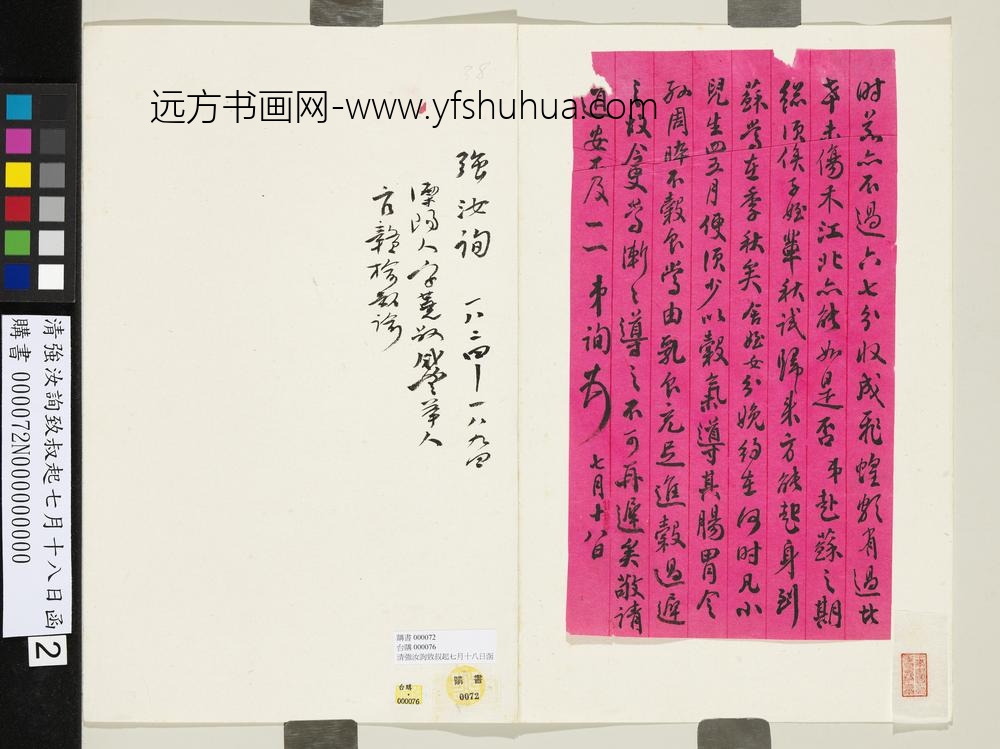 时若亦不過六七分收成飛蝗頗有過此
幸未傷禾江北亦能如是否弟赴蘇之期
總須俟子姪輩秋試歸來方能起身到
蘇當在季秋矣舍姪女分娩約在何時凡小
兒生四五月便須少以穀氣導其腸胃令
孫周晬不穀食當由乳食充足進穀過遲
之故今更當漸之導之不可再遲矣敬請
安不及一一弟詢 七月十八日
強汝詢 一八二四—一八九四
溧陽人字蕘叔咸豐舉人
官贛榆教諭
38
远方书画网-www.yfshuhua.com
清強汝詢致叔起七月十八日函
購書 000072N000000000
2
購書 000072
台購 000076
清強汝詢致叔起七月十八日函
台購
000076
購書
0072